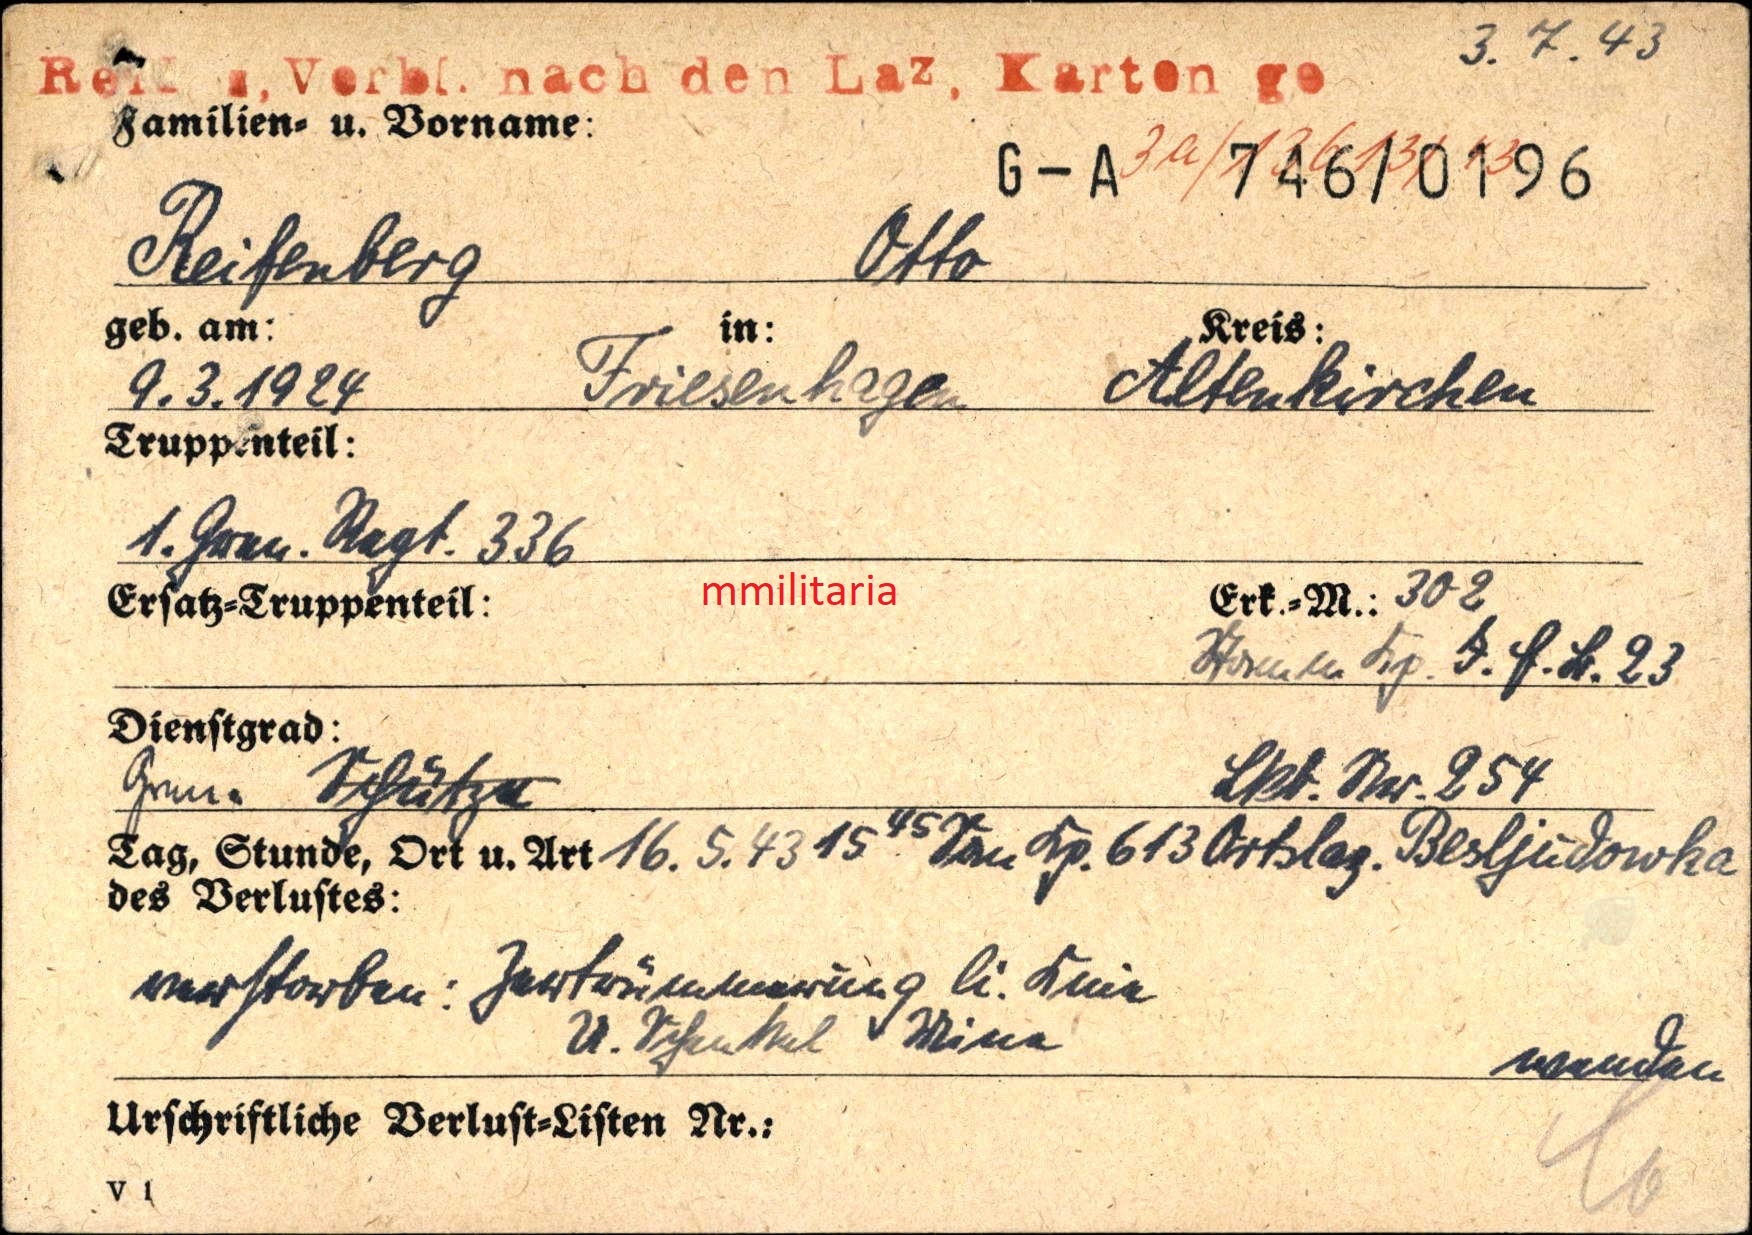 3. 7. 43
Verbl. nach den Laz, Karten ge
Familien- u. Vorname:
G-A 746/0196
Reifenberg Otto
geb. am: in: Kreis:
9.3.1924 Friesenhagen Altenkirchen
Truppenteil:
1. Gren. Regt. 336
Ersatz-Truppenteil: mmilitaria Erk.-M.: 302
Stamm Kp. I. E. B. 23
Dienstgrad:
Gren. Schütze Lkt. Nr. 254
Tag, Stunde, Ort u. Art 16. 5. 43 15 45 San Kp. 613 Ortslaz. Besljudowka
des Verlustes:
verstorben: Zertrümmerung li. Knie
U. Schenkel Mine
wenden
Urschriftliche Verlust-Listen Nr.:
V 1